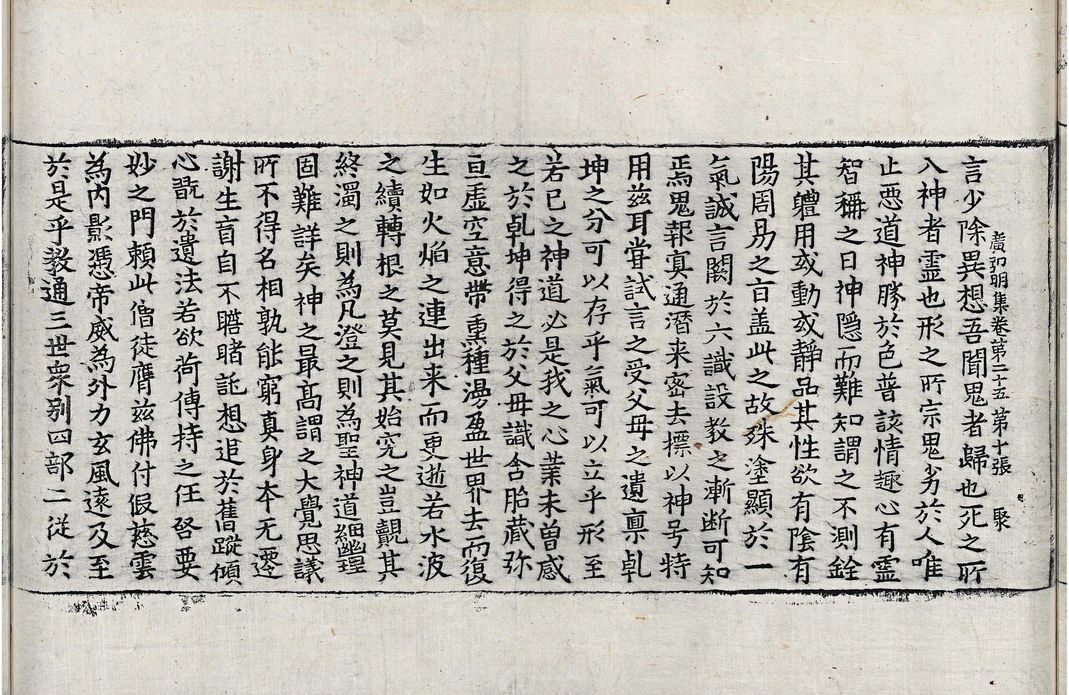 廣弘明集卷第二十五 第十張 聚
言少除異想吾聞鬼者歸也死之所
入神者靈也形之所宗鬼劣於人唯
止惡道神勝於色普該情趣心有靈
智稱之曰神隱而難知謂之不測銓
其體用或動或靜品其性欲有陰有
陽周易之旨盖此之故殊塗顯於一
氣誠言闕於六識設教之漸断可知
焉鬼報冥通潛来密去摽以神号特
用兹耳嘗試言之受父母之遺禀乹
坤之分可以存乎氣可以立乎形至
若已之神道必是我之心業未曾感
之於乹坤得之於父母識含胎藏弥
亘虚空意帶熏種漫盈世界去而復
生如火焰之連出来而更逝若水波
之續轉根之莫見其始究之豈覿其
終濁之則為凡澄之則為聖神道細幽理
固難詳矣神之最高謂之大覺思議
所不得名相孰能窮真身本无遷
謝生盲自不瞻睹託想追於舊蹤傾
心翫於遺法若欲荷傳持之任啓要
妙之門頼此僧徒膺兹佛付假慈雲
為内影憑帝威為外力玄風遠及至
於是乎教通三世衆别四部二從於